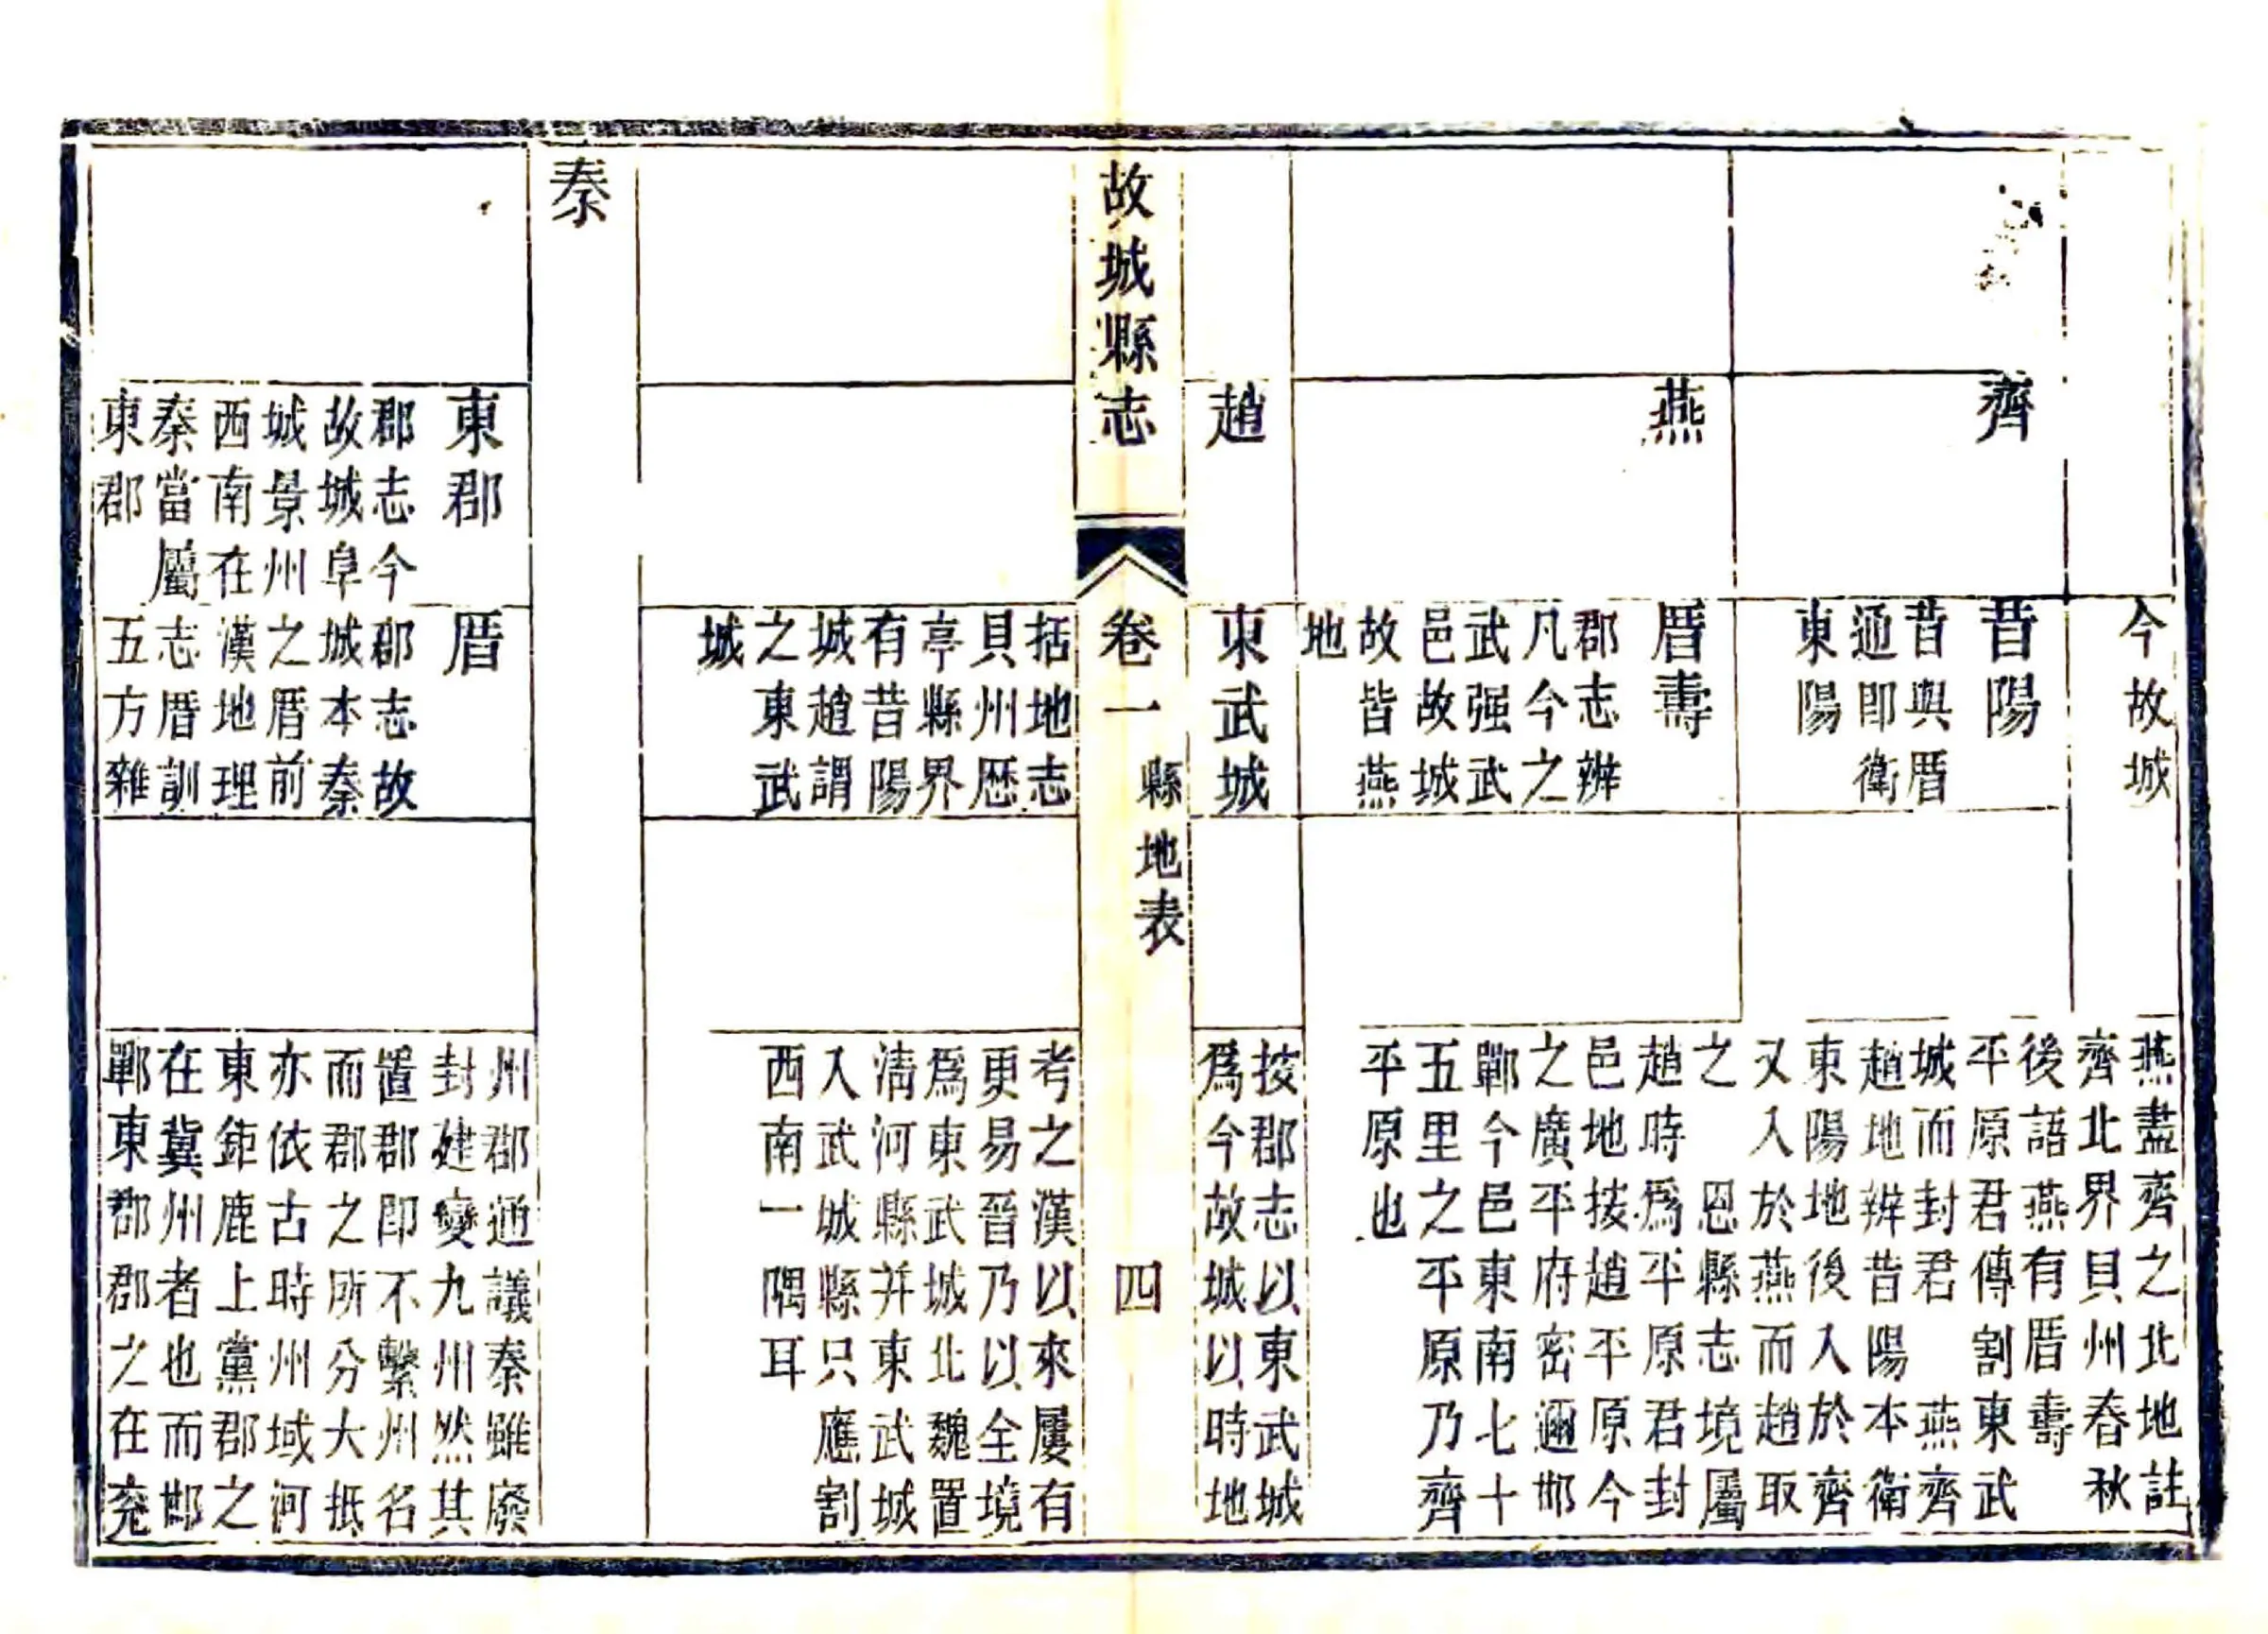 今故城
燕盡齊之北地註
齊北界貝州春秋
後語燕有厝壽
平原君傳割東武
城而封君　燕齊
趙地辨昔陽本衛
東陽地後入於齊
又入於燕而趙取
之　恩縣志境屬
趙時爲平原君封
邑地按趙平原今
之廣平府密邇邯
鄲今邑東南七十
五里之平原乃齊
平原也
齊
昔陽
昔與厝
通即衛
東陽
燕
厝壽
郡志辨
凡今之
武强武
邑故城
故皆燕
地
趙
東武城
按郡志以東武城
爲今故城以時地
故城縣志
卷一
縣地表
四
括地志
貝州歷
亭縣界
有昔陽
城趙謂
之東武
城
考之漢以來屢有
更易晉乃以全境
爲東武城北魏置
清河縣并東武城
入武城縣只應割
西南一隅耳
秦
東郡
郡志今
故城阜
城景州
西南在
秦當屬
東郡
厝
郡志故
城本秦
之厝前
漢地理
志厝訓
五方雜
州郡通議秦雖廢
封建變九州然其
置郡即不繫州名
而郡之所分大抵
亦依古時州域河
東鉅鹿上黨郡之
在冀州者也而邯
鄲東郡郡之在兖